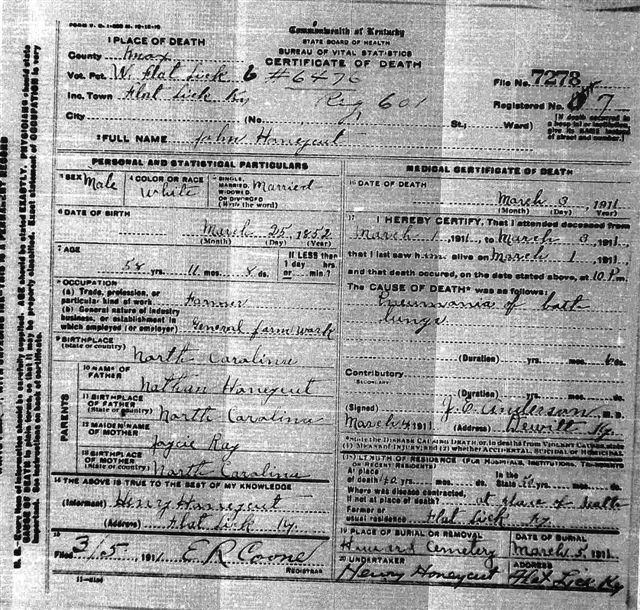 FORM V. S. 1-
Commonwealth of Kentucky
STATE BOARD OF HEALTH
BUREAU OF VITAL STATISTICS
CERTIFICATE OF DEATH
1 PLACE OF DEATH
County Knox
Vot. Pct. W. Flat Lick 6 #6476
File No. 7278
Inc. Town Flat Lick Ky Reg 601
Registered No. 7
City (No. St., Ward)
2 FULL NAME John Honeycut
PERSONAL AND STATISTICAL PARTICULARS
3 SEX Male
4 COLOR OR RACE White
5 SINGLE, MARRIED, WIDOWED OR DIVORCED (Write the word) Married
6 DATE OF BIRTH
March 25, 1852
(Month) (Day) (Year)
7 AGE
58 yrs. 11 mos. 8 ds.
If LESS than 1 day hrs or min.?
8 OCCUPATION
(a) Trade, profession, or particular kind of work Farmer
(b) General nature of industry business, or establishment in which employed (or employer) General farm work
9 BIRTHPLACE (State or country) North Carolina
PARENTS
10 NAME OF FATHER Nathan Honeycut
11 BIRTHPLACE OF FATHER (State or country) North Carolina
12 MAIDEN NAME OF MOTHER Ray
13 BIRTHPLACE OF MOTHER (State or country) North Carolina
14 THE ABOVE IS TRUE TO THE BEST OF MY KNOWLEDGE
(Informant) Henry Honeycut
(Address) Flat Lick Ky.
15
Filed 3/5 1911 E R Coone
REGISTRAR
MEDICAL CERTIFICATE OF DEATH
16 DATE OF DEATH
March 3, 1911
(Month) (Day) (Year)
17 I HEREBY CERTIFY, That I attended deceased from
March 1, 1911, to March 3, 1911,
that I last saw him alive on March 1, 1911,
and that death occured, on the date stated above, at 10 P.m.
The CAUSE OF DEATH* was as follows:
Pneumonia of both
lungs
(Duration) yrs. mos. 6 ds.
Contributory
SECONDARY
(Duration) yrs. mos. ds.
(Signed) J. C. Anderson, M. D.
March 4 1911 (Address) Dewitt Ky.
18 LENGTH OF RESIDENCE (FOR HOSPITALS, INSTITUTIONS, TRANSIENTS OR RECENT RESIDENTS)
At place of death yrs. mos. ds. In the State yrs. mos. ds.
Where was disease contracted, if not at place of death? at place of death
Former or usual residence Flat Lick Ky
19 PLACE OF BURIAL OR REMOVAL
Cemetery
DATE OF BURIAL
March 5, 1911
20 UNDERTAKER
Henry Honeycut
ADDRESS
Flat Lick Ky